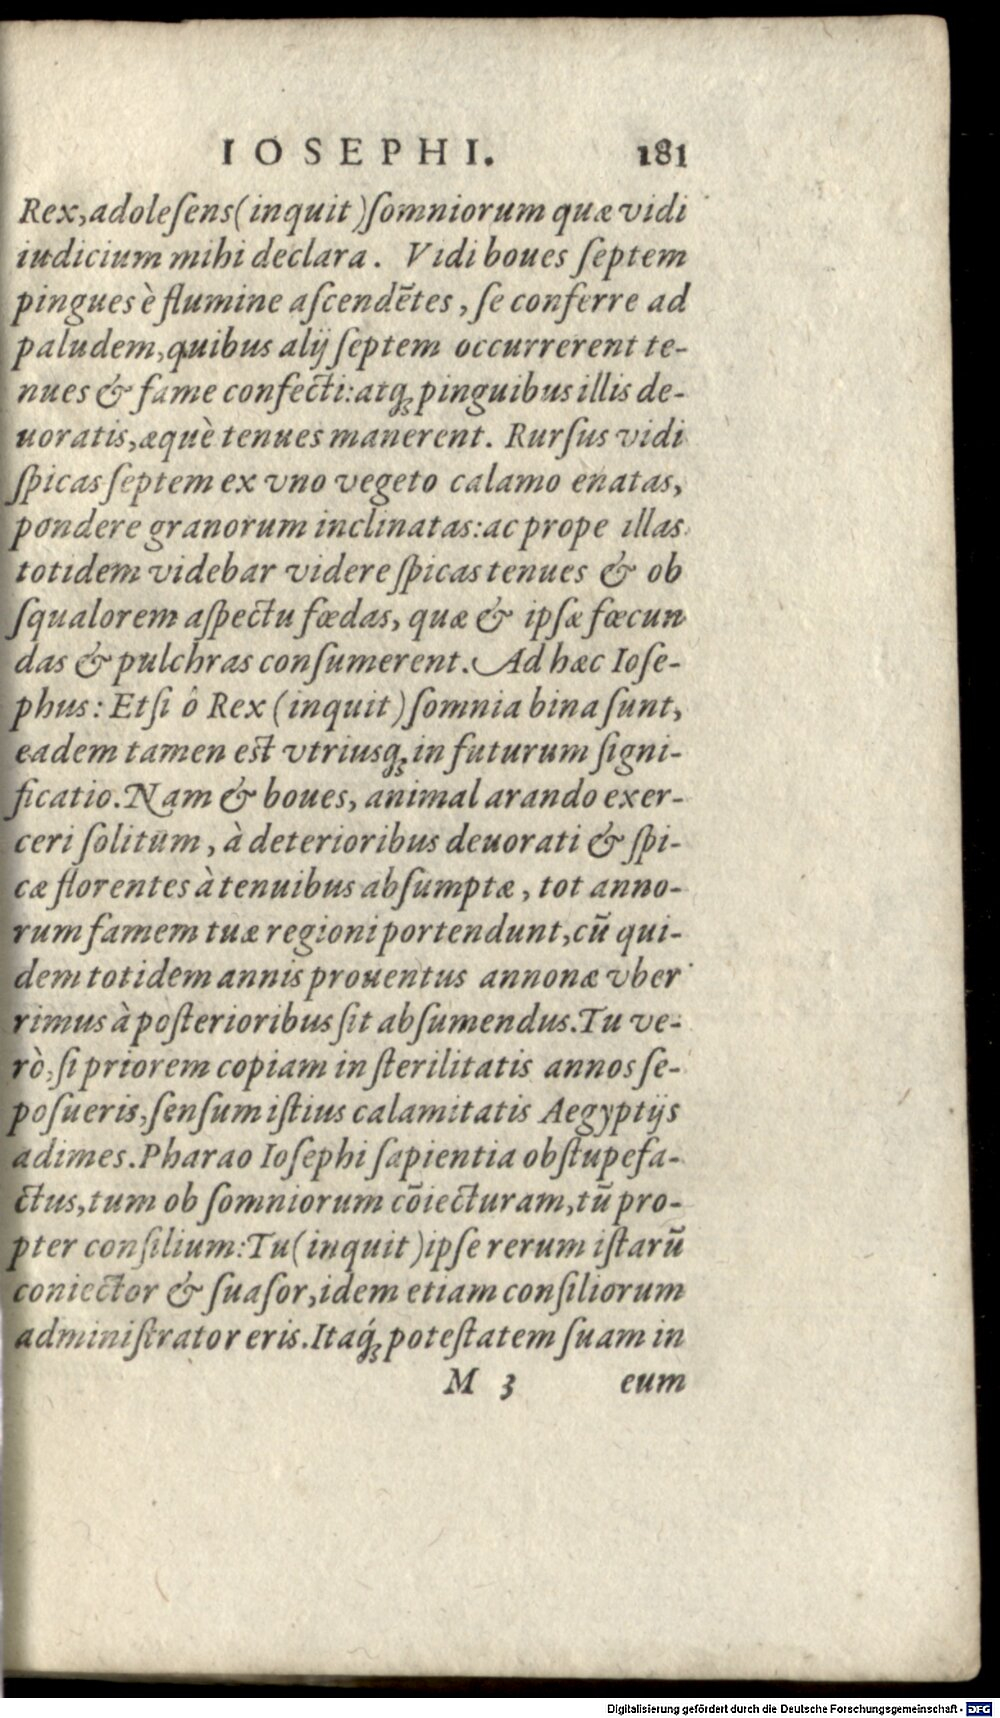 IOSEPHI. 181
Rex, adolesens (inquit) somniorum quæ vidi
iudicium mihi declara. Vidi boues septem
pingues è flumine ascendẽtes, se conferre ad
paludem, quibus alij septem occurrerent te-
nues & fame confecti: atq; pinguibus illis de-
uoratis, æquè tenues manerent. Rursus vidi
spicas septem ex vno vegeto calamo enatas,
pondere granorum inclinatas: ac prope illas
totidem videbar videre spicas tenues & ob
squalorem aspectu fœdas, quæ & ipsæ fœcun
das & pulchras consumerent. Ad hæc Iose-
phus: Etsi ô Rex (inquit) somnia bina sunt,
eadem tamen est vtriusq; in futurum signi-
ficatio. Nam & boues, animal arando exer-
ceri solitum, à deterioribus deuorati & spi-
cæ florentes à tenuibus absumptæ, tot anno-
rum famem tuæ regioni portendunt, cũ qui-
dem totidem annis prouentus annonæ vber
rimus à posterioribus sit absumendus. Tu ve-
rò, si priorem copiam in sterilitatis annos se-
posueris, sensum istius calamitatis Aegyptijs
adimes. Pharao Iosephi sapientia obstupefa-
ctus, tum ob somniorum cõiecturam, tũ pro-
pter consilium: Tu (inquit) ipse rerum istarũ
coniector & suasor, idem etiam consiliorum
administrator eris. Itaq́; potestatem suam in
M 3 eum
Digitalisierung gefördert durch die Deutsche Forschungsgemeinschaft - DFG